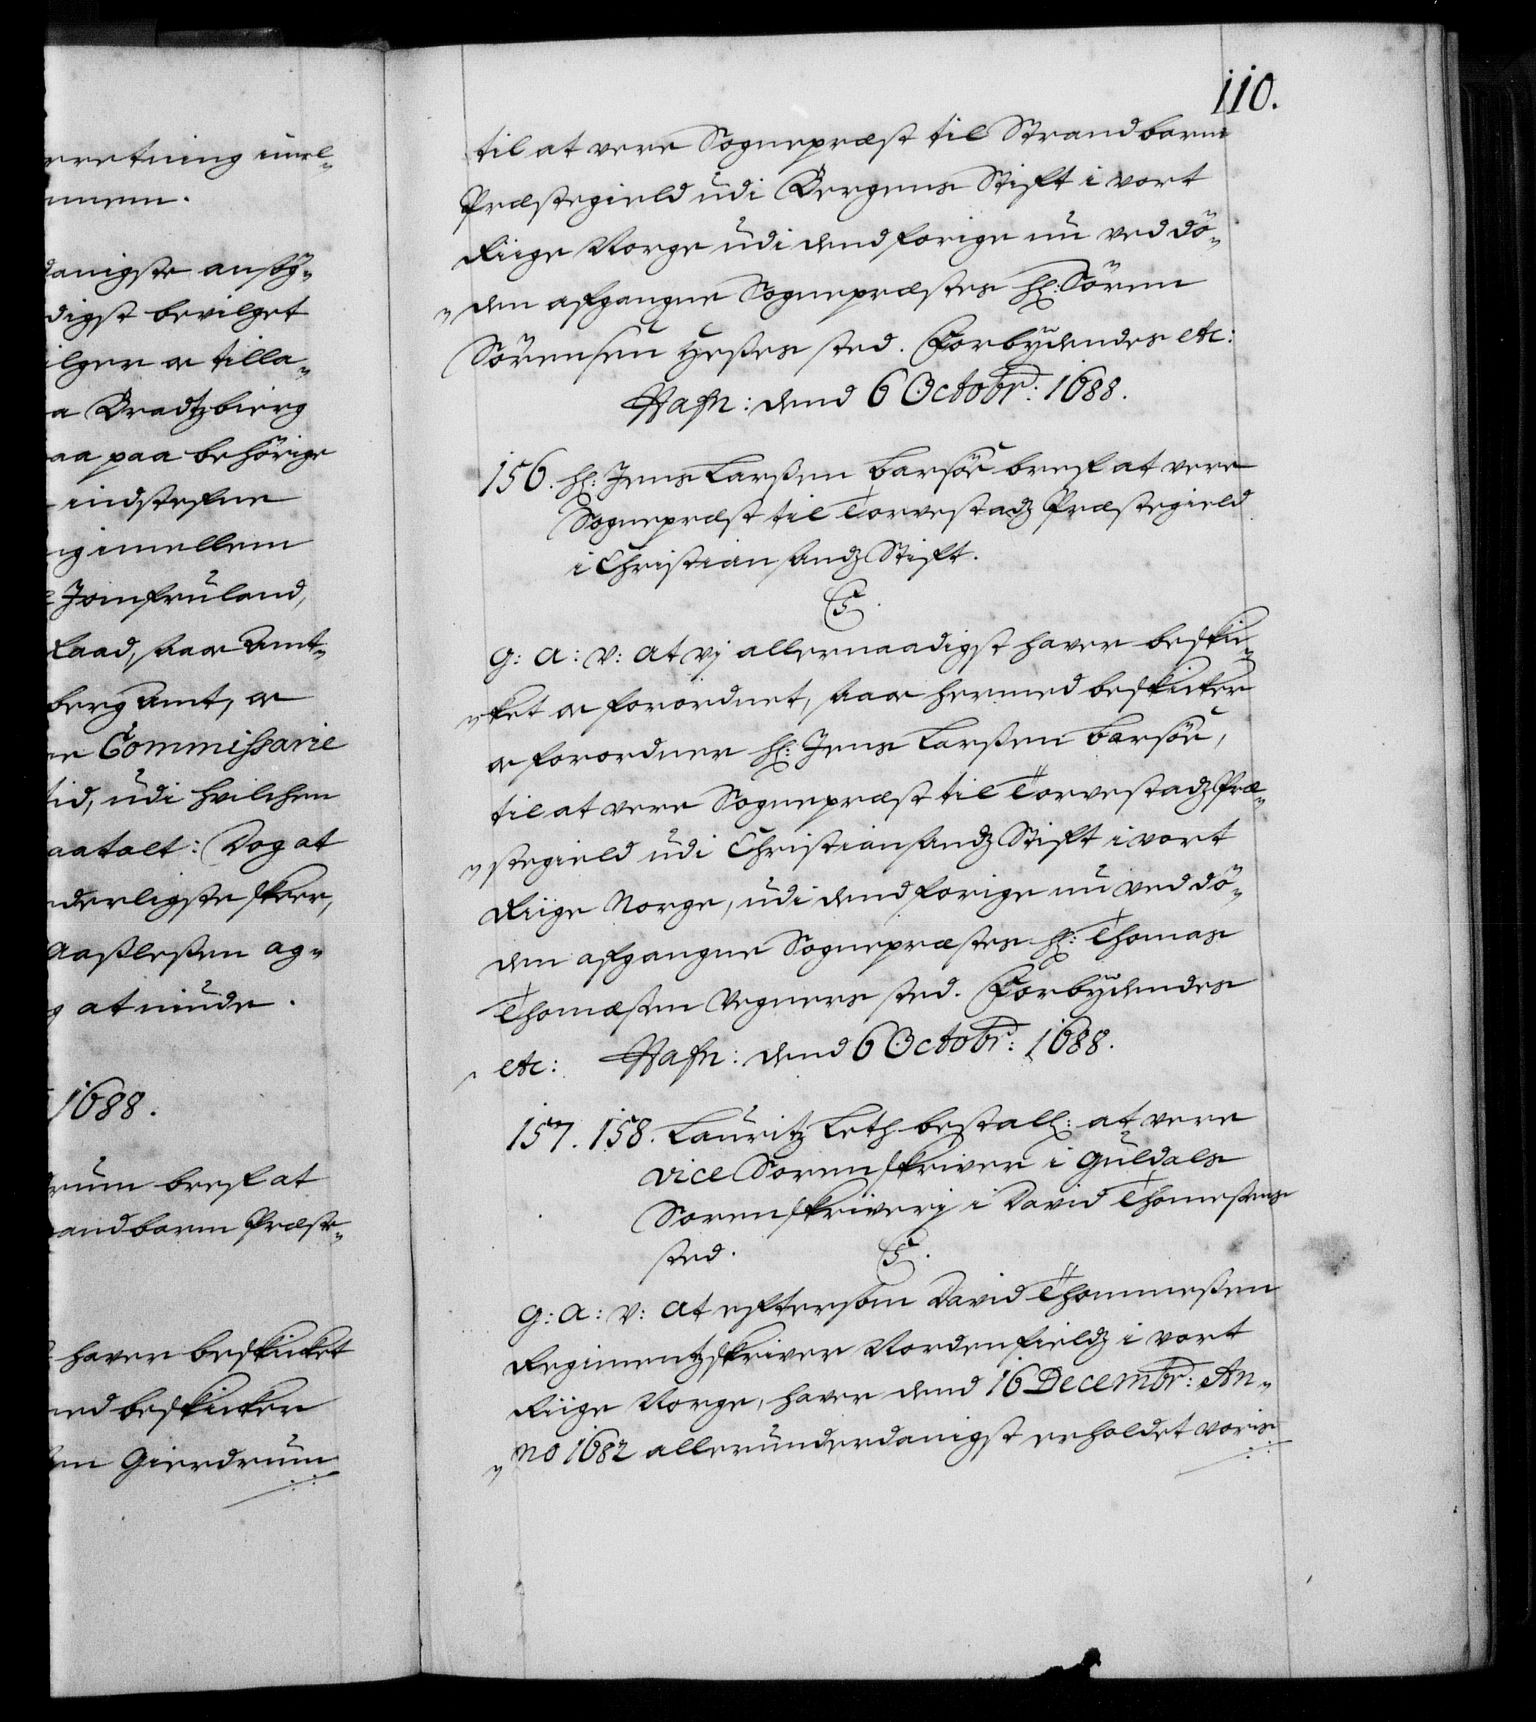 rretning imel-
mem.
danigste ansög-
digst bevilget
ilger oc tilla-
a Bradtzbierg
aa paa behörige
indstefne
ng imellem
Jomfruland,
laad, saa oc Amt-
berg Amt, oc
ne Commissarie
tid, udi hvilchen
aatalt: Dog at
nderligste skeer,
Aaslessen ag-
g at niude.
1688.
rum bref at
andbarm Præste-
haver beskicket
med beskicker
en Gierdrum
110.
til at vere Sognepræst til Strandbarm
Præstegield udi Bergens Stift i vort
Riige Norge udi dend forige nu ved dö-
den afgangne Sognepræstes hr: Sören
Sörensen Hesses sted. Forbydendes etc:
Hafn: dend 6 Octobr: 1688.
156. hr: Jens Larssen Barsöe bref at vere
Sognepræst til Torvestadz Præstegield
i Christiansandz Stift.
C5.
G: A: V: At vj allernaadigst haver beskic-
ket oc forordnet, saa oc hermed beskicker
oc forordner hr: Jens Larssen Barsöe,
til at vere Sognepræst til Torvestadz Præ-
stegield udi Christiansandz Stift i vort
Riige Norge, udi dend forige nu ved dö-
den afgangne Sognepræstes hr: Thomas
Thomæssen Wegners sted. Forbydendes
etc: Hafn: dend 6 Octobr: 1688.
157. 158. Lauritz Leth bestall: at vere
vice Sorenskriver i Guldals
Sorenskriverj i David Thomessens
sted. C5.
G: A: V: At eftersom David Thommessen
Regimentzskriver Nordenfieldz i vort
Riige Norge, haver dend 16 Decembr: An-
no 1682 allerunderdanigst erholdet voris